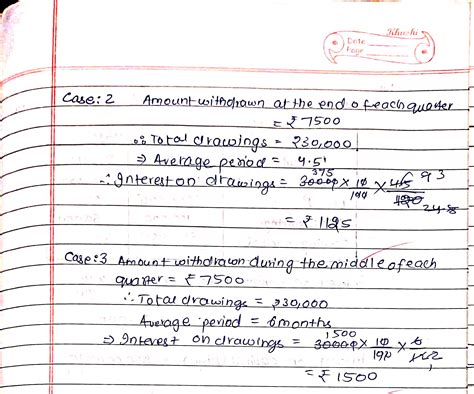 Khushi
Date
Page
Case: 2 Amount withdrawn at the end of each quarter
= ₹ 7500
∴ Total drawings = ₹30,000
⇒ Average period = 4.5
∴ Interest on drawings = 30000 × 10/100 × 45/120
= ₹ 1125
Case: 3 Amount withdrawn during the middle of each
quarter = ₹ 7500
∴ Total drawings = ₹30,000
Average period = 6 months
⇒ Interest on drawings = 30000 × 10/100 × 6/12
= ₹ 1500